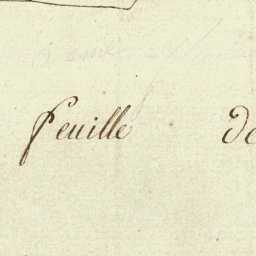 feuille de